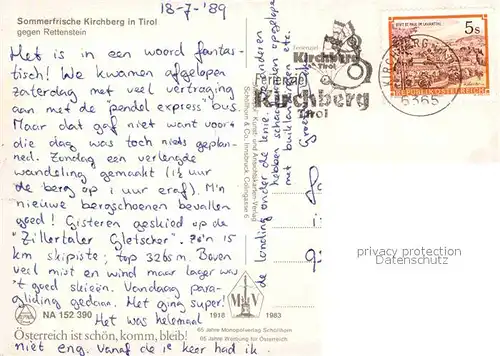 18-7-'89
Sommerfrische Kirchberg in Tirol
gegen Rettenstein
Het is in een woord fantas-
tisch! We kwamen afgelopen
zaterdag met veel vertraging
aan met de "pendel express" bus.
Maar dat gaf niet want voor
die dag was toch niets geplan-
ned. Zondag een verlengde
wandeling gemaakt (1½ uur
de berg op 1 uur eraf). M'n
nieuwe bergschoenen bevallen
goed! Gisteren geskied op de
"Zillertaler Gletscher". Zo'n 15
km skipiste; top 3265m. Boven
veel mist en wind maar lager was
't goed skieën. Vandaag para-
gliding gedaan. Het ging super!
NA 152 390
Het was helemaal
Österreich ist schön, komm, bleib!
niet eng. Vanaf de 1e keer had ik
de landing onder de knie. anderen
hebben
met buiklandingen etc.
Kunst- und Ansichtskarten-Verlag
Schöllhorn & Co, Innsbruck, Colingasse 6
1918 1983
65 Jahre Monopolverlag Schöllhorn
65 Jahre Werbung für Österreich
Ferienziel
Kirchberg
Tirol
Ferienziel
Kirchberg
Tirol
5s
REPUBLIK ÖSTERREICH
6365
privacy protection
www.delcampe.net